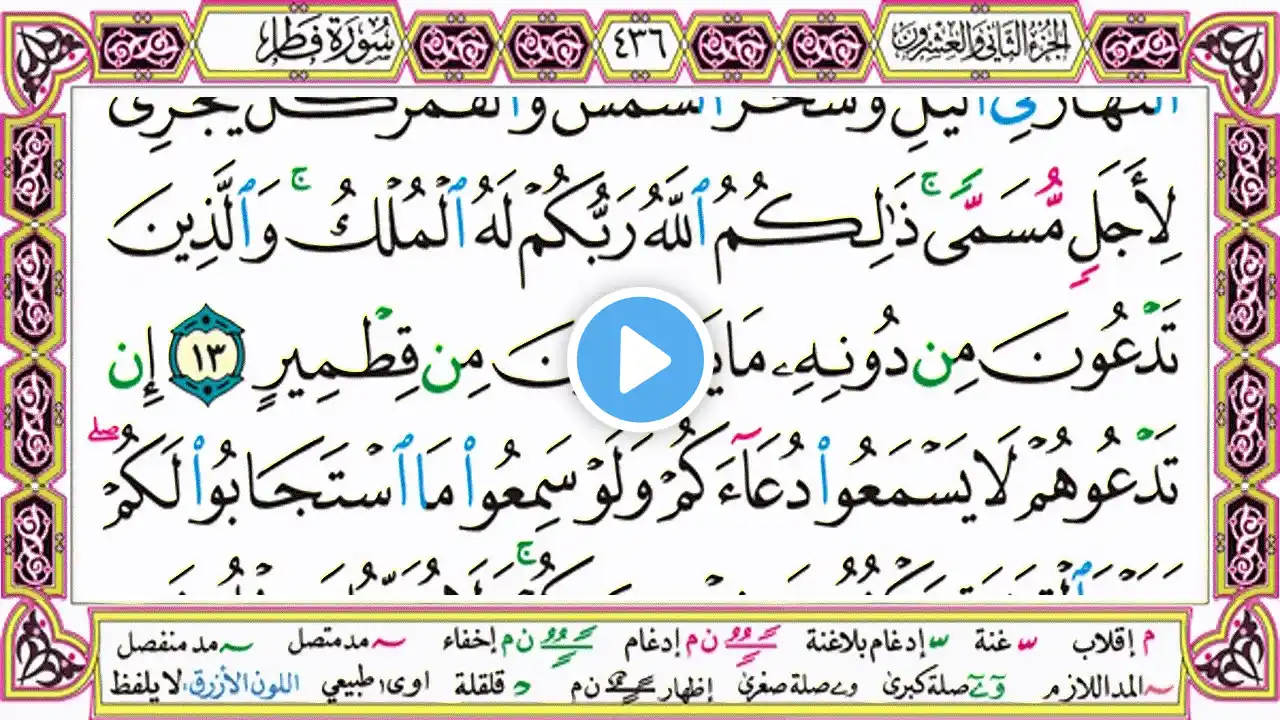 سُورَةُ فَطِر
٤٣٦
الجزء الثاني والعشرون
النهار في اليل وسخر الشمس والقمر كل يجرى
لِأَجَلٍ مُّسَمًّى ۚ ذَٰلِكُمُ ٱللَّهُ رَبُّكُمْ لَهُ ٱلْمُلْكُ ۚ وَٱلَّذِينَ
تَدْعُونَ مِن دُونِهِۦ مَا مِن قِطْمِيرٍ ١٣ إِن
تَدْعُوهُمْ لَا يَسْمَعُوا۟ دُعَآءَكُمْ وَلَوْ سَمِعُوا۟ مَا ٱسْتَجَابُوا۟ لَكُمْ ۖ
م إقلاب ّ غنة ّ إدغام بلاغنة ن م إدغام ن م إخفاء ~ مد متصل ~ مد منفصل
~ المد اللازم و ے صلة كبرى و ے صلة صغرى إظهار ن م د قلقلة اوى طبيعي اللون الأزرق: لا يلفظ